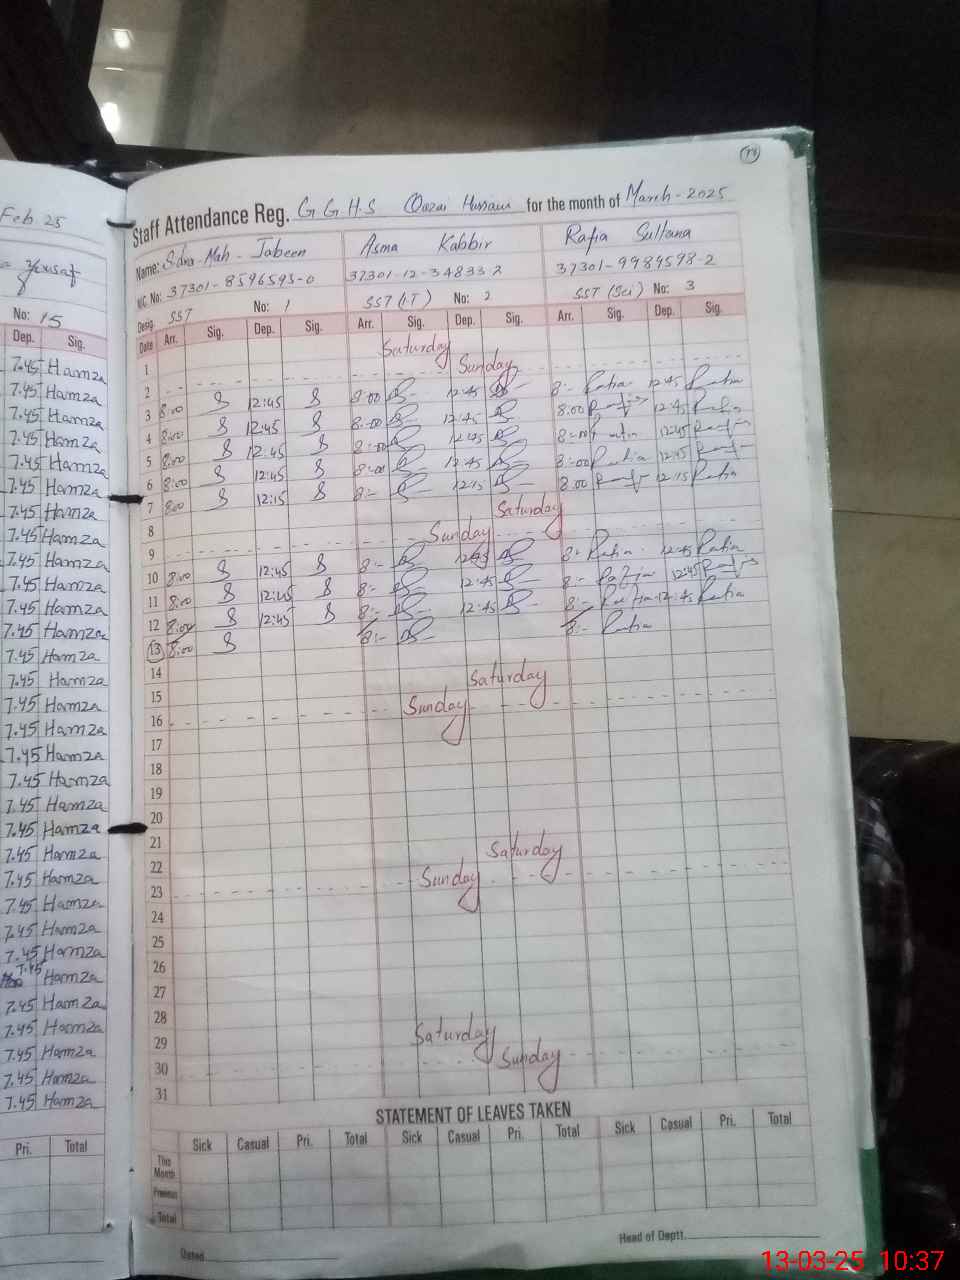 Feb 25
No: 15
Dep. Sig.
7.45 Hamza
7.45 Hamza
7.45 Hamza
7.45 Hamza
7.45 Hamza
7.45 Hamza
7.45 Hamza
7.45 Hamza
7.45 Hamza
7.45 Hamza
7.45 Hamza
7.45 Hamza
7.45 Hamza
7.45 Hamza
7.45 Hamza
7.45 Hamza
7.45 Hamza
7.45 Hamza
7.45 Hamza
7.45 Hamza
7.45 Hamza
7.45 Hamza
7.45 Hamza
7.45 Hamza
7.45 Hamza
7.45 Hamza
7.45 Hamza
7.45 Hamza
7.45 Hamza
7.45 Hamza
7.45 Hamza
Pri. Total
Staff Attendance Reg. G G.H.S Qazai Hussain for the month of March-2025
Name: Mah-Jabeen Asma Kabbir Rafia Sultana
N/C. No: 37301-8596593-0 37301-12-34833 2 37301-9989598-2
Desig. SST No: 1 SST (I.T) No: 2 SST (Sci) No: 3
Date Arr. Sig. Dep. Sig. Arr. Sig. Dep. Sig. Arr. Sig. Dep. Sig.
1 Saturday
2 Sunday
3 8:00 12:45 8:00 12:45 8:- Rafia 12:45 Rafia
4 8:00 12:45 8:00 12:45 8:00 12:45 Rafia
5 8:00 12:45 8:00 12:45 8:00 Rafia 12:45
6 8:00 12:45 8:00 12:45 8:00 Rafia 12:45
7 8:00 12:15 8:- 12:15 8:00 12:15 Rafia
8 Saturday
9 Sunday
10 8:00 12:45 8:- 12:45 8:- Rafia 12:45 Rafia
11 8:00 12:45 8:- 12:45 8:- Rafia 12:45
12 8:00 12:45 8:- 12:45 8:- Rafia 12:45 Rafia
13 8:00 8:- 8:- Rafia
14
15 Saturday
16 Sunday
17
18
19
20
21
22 Saturday
23 Sunday
24
25
26
27
28
29 Saturday
30 Sunday
31
STATEMENT OF LEAVES TAKEN
Sick Casual Pri. Total Sick Casual Pri. Total Sick Casual Pri. Total
This Month
Previous
Total
Dated
Head of Deptt.
13-03-25 10:37